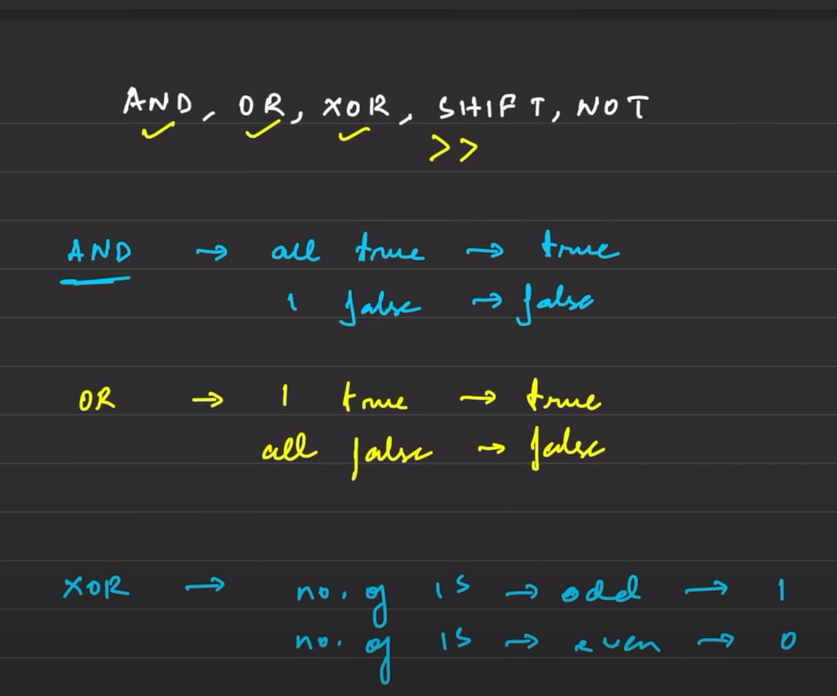 AND, OR, XOR, SHIFT, NOT
>>
AND → all true → true
1 false → false
OR → 1 true → true
all false → false
XOR → no. of 1s → odd → 1
no. of 1s → even → 0